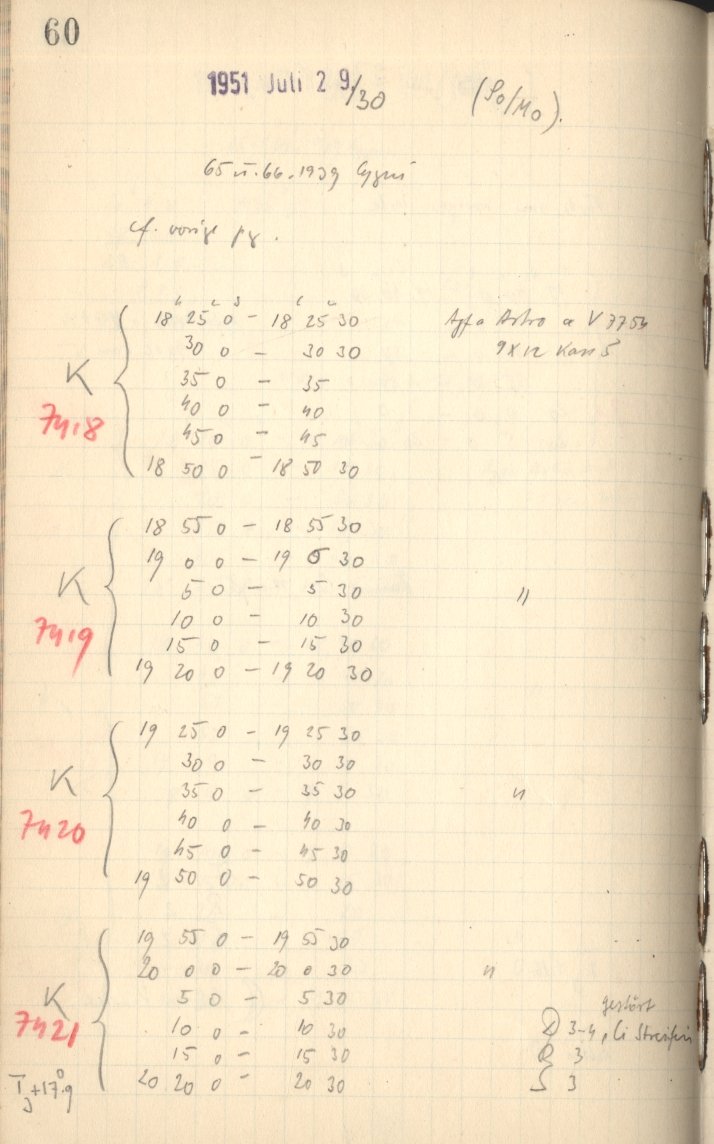 60
1951 Juli 29/30 (So/Mo).
65 u. 66.1939 Cygni
cf. vorige pg.
h m s h m
18 25 0 - 18 25 30 Agfa Astro
30 0 - 30 30 9x12 Kass 5
K 35 0 - 35
7418 40 0 - 40
45 0 - 45
18 50 0 - 18 50 30
18 55 0 - 18 55 30
19 0 0 - 19 0 30
K 5 0 - 5 30 "
7419 10 0 - 10 30
15 0 - 15 30
19 20 0 - 19 20 30
19 25 0 - 19 25 30
30 0 - 30 30
K 35 0 - 35 30 "
7420 40 0 - 40 30
45 0 - 45 30
19 50 0 - 50 30
19 55 0 - 19 55 30
20 0 0 - 20 0 30 "
K 5 0 - 5 30 gestört
7421 10 0 - 10 30 D 3-4, Ci Streifen
15 0 - 15 30 R 3
T +17°.9 20 20 0 - 20 30 S 3